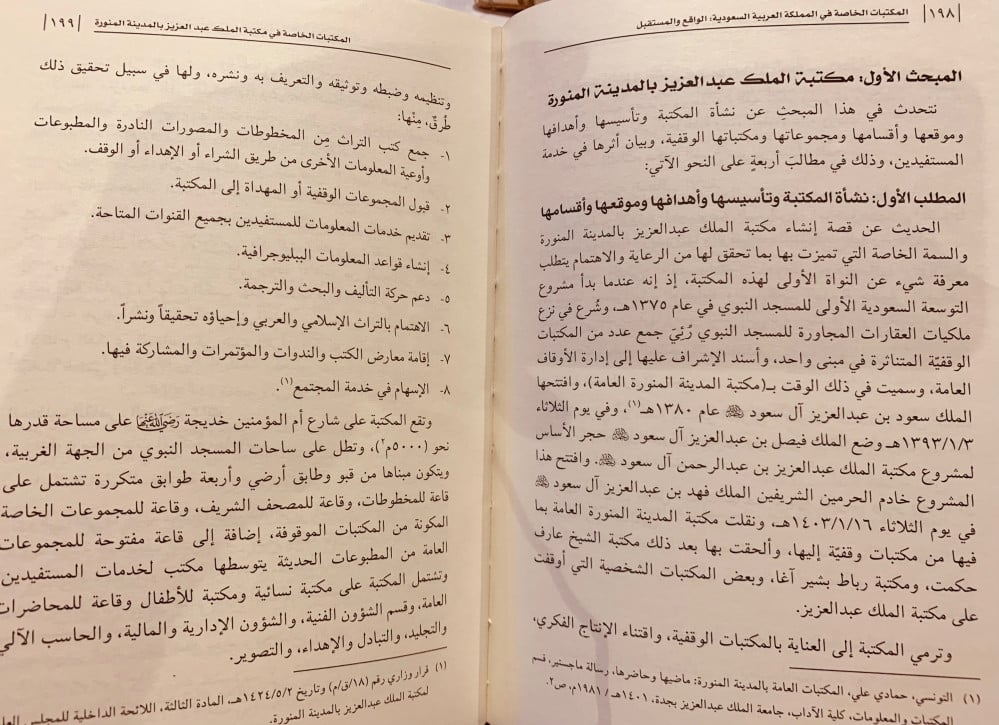 |١٩٨| المكتبات الخاصة في المملكة العربية السعودية: الواقع والمستقبل
المبحث الأول: مكتبة الملك عبدالعزيز بالمدينة المنورة
نتحدث في هذا المبحثِ عن نشأة المكتبة وتأسيسها وأهدافها
وموقعها وأقسامها ومجموعاتها ومكتباتها الوقفية، وبيان أثرها في خدمة
المستفيدين، وذلك في مطالبَ أربعةٍ على النحو الآتي:
المطلب الأول: نشأة المكتبة وتأسيسها وأهدافها وموقعها وأقسامها
الحديث عن قصة إنشاء مكتبة الملك عبدالعزيز بالمدينة المنورة
والسمة الخاصة التي تميزت بها بما تحقق لها من الرعاية والاهتمام يتطلب
معرفة شيء عن النواة الأولى لهذه المكتبة، إذ إنه عندما بدأ مشروع
التوسعة السعودية الأولى للمسجد النبوي في عام ١٣٧٥هـ، وشُرع في نزع
ملكيات العقارات المجاورة للمسجد النبوي رُئِيَ جمع عدد من المكتبات
الوقفيّة المتناثرة في مبنى واحد، وأسند الإشراف عليها إلى إدارة الأوقاف
العامة، وسميت في ذلك الوقت بـ(مكتبة المدينة المنورة العامة)، وافتتحها
الملك سعود بن عبدالعزيز آل سعود عام ١٣٨٠هـ(١)، وفي يوم الثلاثاء
١٣٩٣/١/٣هـ وضع الملك فيصل بن عبدالعزيز آل سعود حجر الأساس
لمشروع مكتبة الملك عبدالعزيز بن عبدالرحمن آل سعود. وافتتح هذا
المشروع خادم الحرمين الشريفين الملك فهد بن عبدالعزيز آل سعود
في يوم الثلاثاء ١٤٠٣/١/١٦هـ، ونقلت مكتبة المدينة المنورة العامة بما
فيها من مكتبات وقفيّة إليها، وألحقت بها بعد ذلك مكتبة الشيخ عارف
حكمت، ومكتبة رباط بشير آغا، وبعض المكتبات الشخصية التي أوقفت
على مكتبة الملك عبدالعزيز.
وترمي المكتبة إلى العناية بالمكتبات الوقفية، واقتناء الإنتاج الفكري،
(١) التونسي، حمادي علي، المكتبات العامة بالمدينة المنورة: ماضيها وحاضرها، رسالة ماجستير، قسم
المكتبات والمعلومات، كلية الآداب، جامعة الملك عبدالعزيز بجدة، ١٤٠١هـ/ ١٩٨١م، ص٢.
المكتبات الخاصة في مكتبة الملك عبد العزيز بالمدينة المنورة |١٩٩|
وتنظيمه وضبطه وتوثيقه والتعريف به ونشره، ولها في سبيل تحقيق ذلك
طُرقٌ، مِنْها:
١- جمع كتب التراث مِن المخطوطات والمصورات النادرة والمطبوعات
وأوعية المعلومات الأخرى من طريق الشراء أو الإهداء أو الوقف.
٢- قبول المجموعات الوقفية أو المهداة إلى المكتبة.
٣- تقديم خدمات المعلومات للمستفيدين بجميع القنوات المتاحة.
٤- إنشاء قواعد المعلومات الببليوجرافية.
٥- دعم حركة التأليف والبحث والترجمة.
٦- الاهتمام بالتراث الإسلامي والعربي وإحياؤه تحقيقاً ونشراً.
٧- إقامة معارض الكتب والندوات والمؤتمرات والمشاركة فيها.
٨- الإسهام في خدمة المجتمع(١).
وتقع المكتبة على شارع أم المؤمنين خديجة رضي الله عنها على مساحة قدرها
نحو (٥٠٠٠م٢)، وتطل على ساحات المسجد النبوي من الجهة الغربية،
ويتكون مبناها من قبو وطابق أرضي وأربعة طوابق متكررة تشتمل على
قاعة للمخطوطات، وقاعة للمصحف الشريف، وقاعة للمجموعات الخاصة
المكونة من المكتبات الموقوفة، إضافة إلى قاعة مفتوحة للمجموعات
العامة من المطبوعات الحديثة يتوسطها مكتب لخدمات المستفيدين
وتشتمل المكتبة على مكتبة نسائية ومكتبة للأطفال وقاعة للمحاضرات
العامة، وقسم الشؤون الفنية، والشؤون الإدارية والمالية، والحاسب الآلي
والتجليد، والتبادل والإهداء، والتصوير.
(١) قرار وزاري رقم (١٨/ق/م) وتاريخ ١٤٢٤/٥/٢هـ، المادة الثالثة، اللائحة الداخلية للمجلس
لمكتبة الملك عبدالعزيز بالمدينة المنورة.